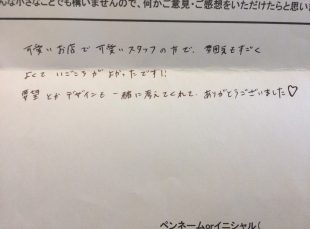 んな小さなことでも構いませんので、何かご意見・ご感想をいただけたらと思いま
可愛いお店で可愛いスタッフの方で、雰囲気もすごく
よくていごこちがよかったです!!
要望とかデザインも一緒に考えてくれて、ありがとうございました♡
ペンネームorイニシャル(